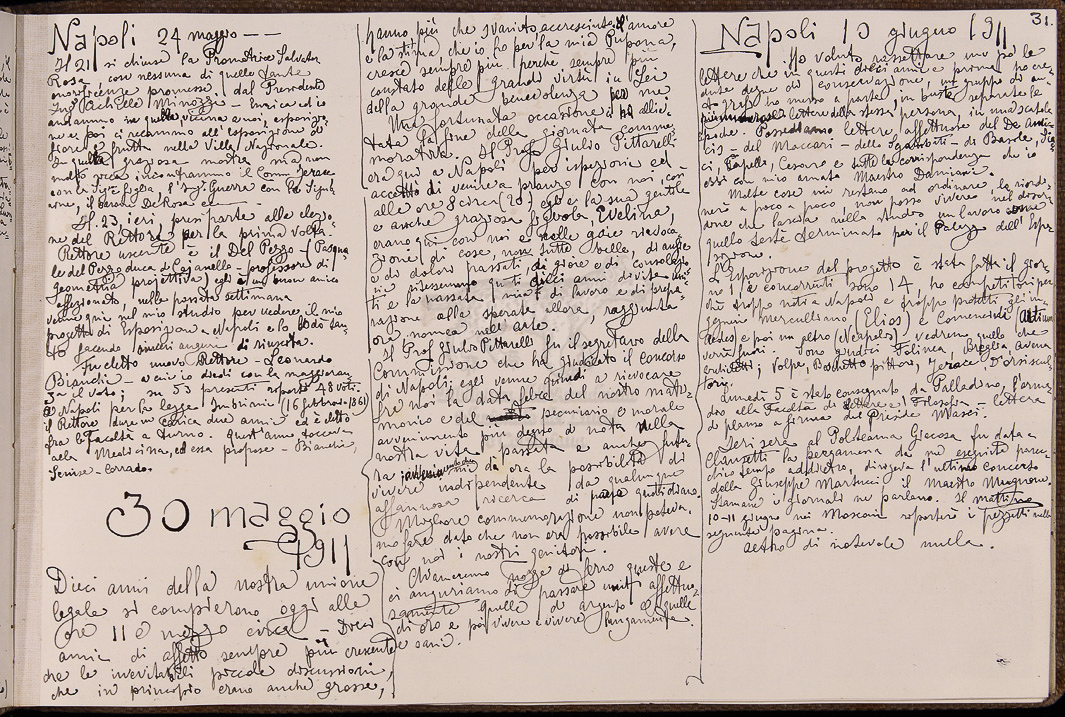 31.
Napoli 24 maggio --
Il 21 si chiuse la Promotrice Salvator
Rosa, con nessuna di quelle tante
onorificenze promesse dal Presidente
Ing. Achille Minozzi - Enrica ed io
andammo in quella vicina a noi, esposizio-
ne e poi ci recammo all'esposizione di
fiori e frutta nella Villa Nazionale.
Fu quella graziosa mostra, ma non
molto ricca incontrammo il Comm. Jerace
con la Sig.ra figlia, l'Ing. Guerra con la Sig.
il barone De Rosa ec
Il 23, ieri, presi parte alle elezio-
ne del Rettore, per la prima volta.
Rettore uscente è il Del Pezzo (Pasqua-
le del Pezzo duca di Cajanello - professore di
geometria projettiva) egli è un buon amico
affezionato, nella passata settimana
venne qui nel mio studio per vedere il mio
progetto di Esposizione a Napoli e lo lodò tan-
to facendo anche auguri di riuscita.
Fu eletto nuovo Rettore - Leonardo
Bianchi - a cui io diedi con la maggioran-
za il voto; su 53 presenti riportò 48 voti.
A Napoli per la legge Imbriani (16 febbraio 1861)
il Rettore dura in carica due anni ed è eletto
fra le Facoltà a turno. Quest'anno toccava
alla Medicina, ed essa propose - Bianchi,
Senise - Corrado.
30 maggio
1911
Dieci anni della nostra unione
legale si compierono oggi alle
ore 11 e mezzo circa - Dieci
anni di affetto sempre più crescente
le inevitabili piccole discussioni,
che in principio erano anche grosse,
hanno più che svanito accresciuto l'amore
e la stima che io ho per la mia Pupona,
cresce sempre più perché sempre più
constato delle grandi virtù in Lei
della grande benevolenza per me
Una fortunata occasione ci ha allie-
tata la fine della giornata comme-
morativa. Il Prof. Giulio Pittarelli
era qui a Napoli per ispezione ed
accettò di venire a pranzo con noi, con
alle ore 8 circa (20) egli e la sua gentile
e anche graziosa figliuola Evelina,
erano qui con noi e nelle gaie rievoca-
zioni di cose, non tutte belle, di affe-
ti di dolori passati, di gioie e di consolazio-
ni riteßemmo questi dieci anni di vita uni-
ti e la passata mia di lavoro e di prepa-
razione alla sperata allora, raggiunta
ora nomea nell'arte.
Il Prof. Giulio Pittarelli fu il segretario della
Commissione che ha giudicato il concorso
di Napoli; egli venne quindi a rievocare
fra noi la data felice del nostro matri-
monio e del pecuniario e morale
avvenimento più degno di nota della
nostra vita passata e anche futu-
ra da ora la possibilità di
vivere indipendente da qualunque
affannosa ricerca di pane quotidiano.
Migliore commemorazione non poteva-
mo fare dato che non era possibile avere
con noi i nostri genitori.
Chiameremo nozze di ferro queste e
ci auguriamo di passare uniti affettuo-
samente quelle di argento e quelle
di oro e poi vivere e vivere lungamente
e sani.
Napoli 10 giugno 1911
Ho voluto rassettare un po' le
lettere che in questi dieci anni e prima ho cre-
dute degne di conservazione, un gruppo di au-
tografi ho messo a parte, in buste separate le
lettere della stessa persona, in una scatola
poche. Possediamo lettere affettuose del De Sanc-
tis - del Maccari - dello Sgambati - di Basile, Sia-
ci, Capelli, Cesaro e tutta la corrispondenza che io
ebbi con mio amato Maestro Damiani.
Molte cose mi restano ad ordinare, la riordi-
nerò a poco a poco non posso vivere nel disor-
dine che lascia nello studio un lavoro come
quello testè terminato per il Palazzo dell'Espo-
sizione.
L'Esposizione del progetto è stata fatta il gior-
no 1, i concorrenti sono 14, ho competitori per-
ciò troppo noti a Napoli e troppo protetti gli in-
gegneri Mercalliano (Elios) e Comencini
e poi un altro (Neapolis) vedremo quello che
verrà fuori. Sono giudici Folinea, Breglia, Avena
architetti; Volpe, Boschetto pittori, Jerace, D'Orsi scul-
tori.
Lunedì 5 è stato consegnato da Palladino, l'armadio
alla Facoltà di Lettere e Filosofia - lettera
di plauso a firma del Preside Masci.
Ieri sera al Politeama Giacosa fu data a
Clausetti la pergamena da me eseguita parec-
chio tempo addietro, dirigeva l'ultimo concerto
della Giuseppe Martucci il Maestro Mugnone.
Stamane i giornali ne parlano. Il mattino
10-11 giugno nei Mosconi riporterà i pezzetti nella
seguente pagina.
Altro di notevole nulla.